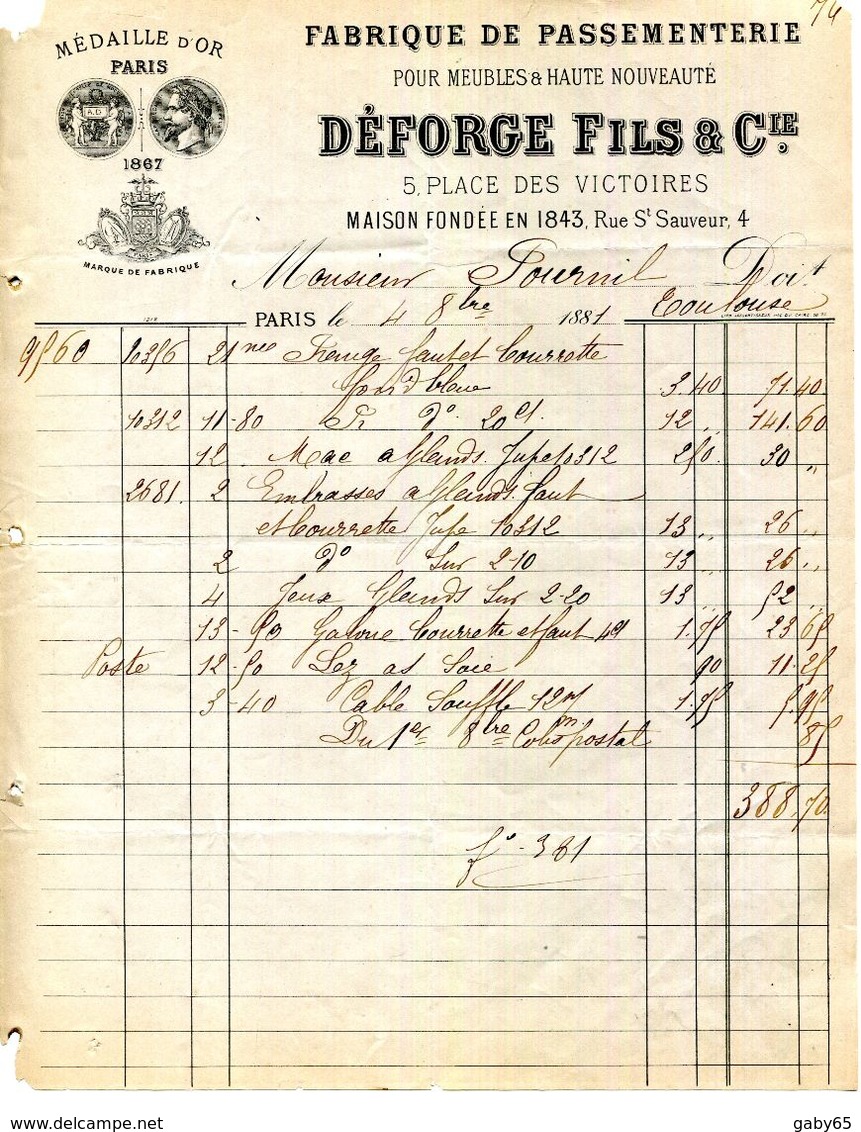 74
MÉDAILLE D'OR
PARIS
1867
MARQUE DE FABRIQUE
FABRIQUE DE PASSEMENTERIE
POUR MEUBLES & HAUTE NOUVEAUTÉ
DÉFORGE FILS & CIE.
5, PLACE DES VICTOIRES
MAISON FONDÉE EN 1843, Rue St Sauveur, 4
Monsieur Pournil Doit
PARIS le 4 8bre 1881 Toulouse
9560 10356 21 fautet Courrette
fond bleue 3.40 71.40
10312 11-80 do 20 ct. 12 „ 141.60
12 Mac a Glands Jupe 10312 250 30 „
2681. 2 Embrasses a Glands faut
et Courrette Jupe 10312 13 „ 26 „
2 do Sur 2-10 13 „ 26 „
4 Jeux Glands Sur 2-20 13 „ 52 „
13-50 Galone Courrette et faut 1.75 23 65
Poste 12-50 Lez as Soie 90 11.25
3-40 Cable Souffle 12 1.75 5.95
Du 1er 8bre Colis postal 85
388.70
fo-381
www.delcampe.net
gaby65